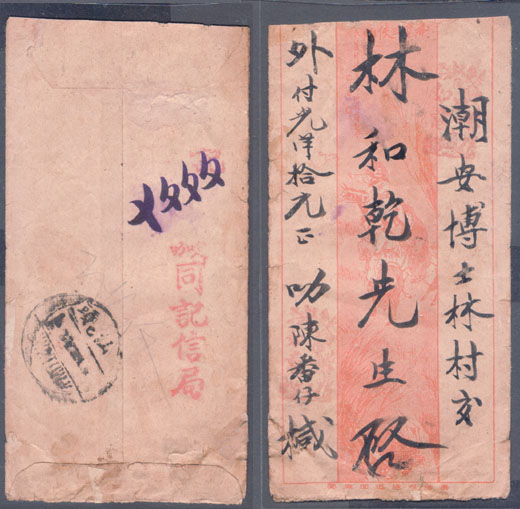 潮安博士林村交
林和乾先生啓
外付光洋拾元正 叻陳番仔椷
同記信局